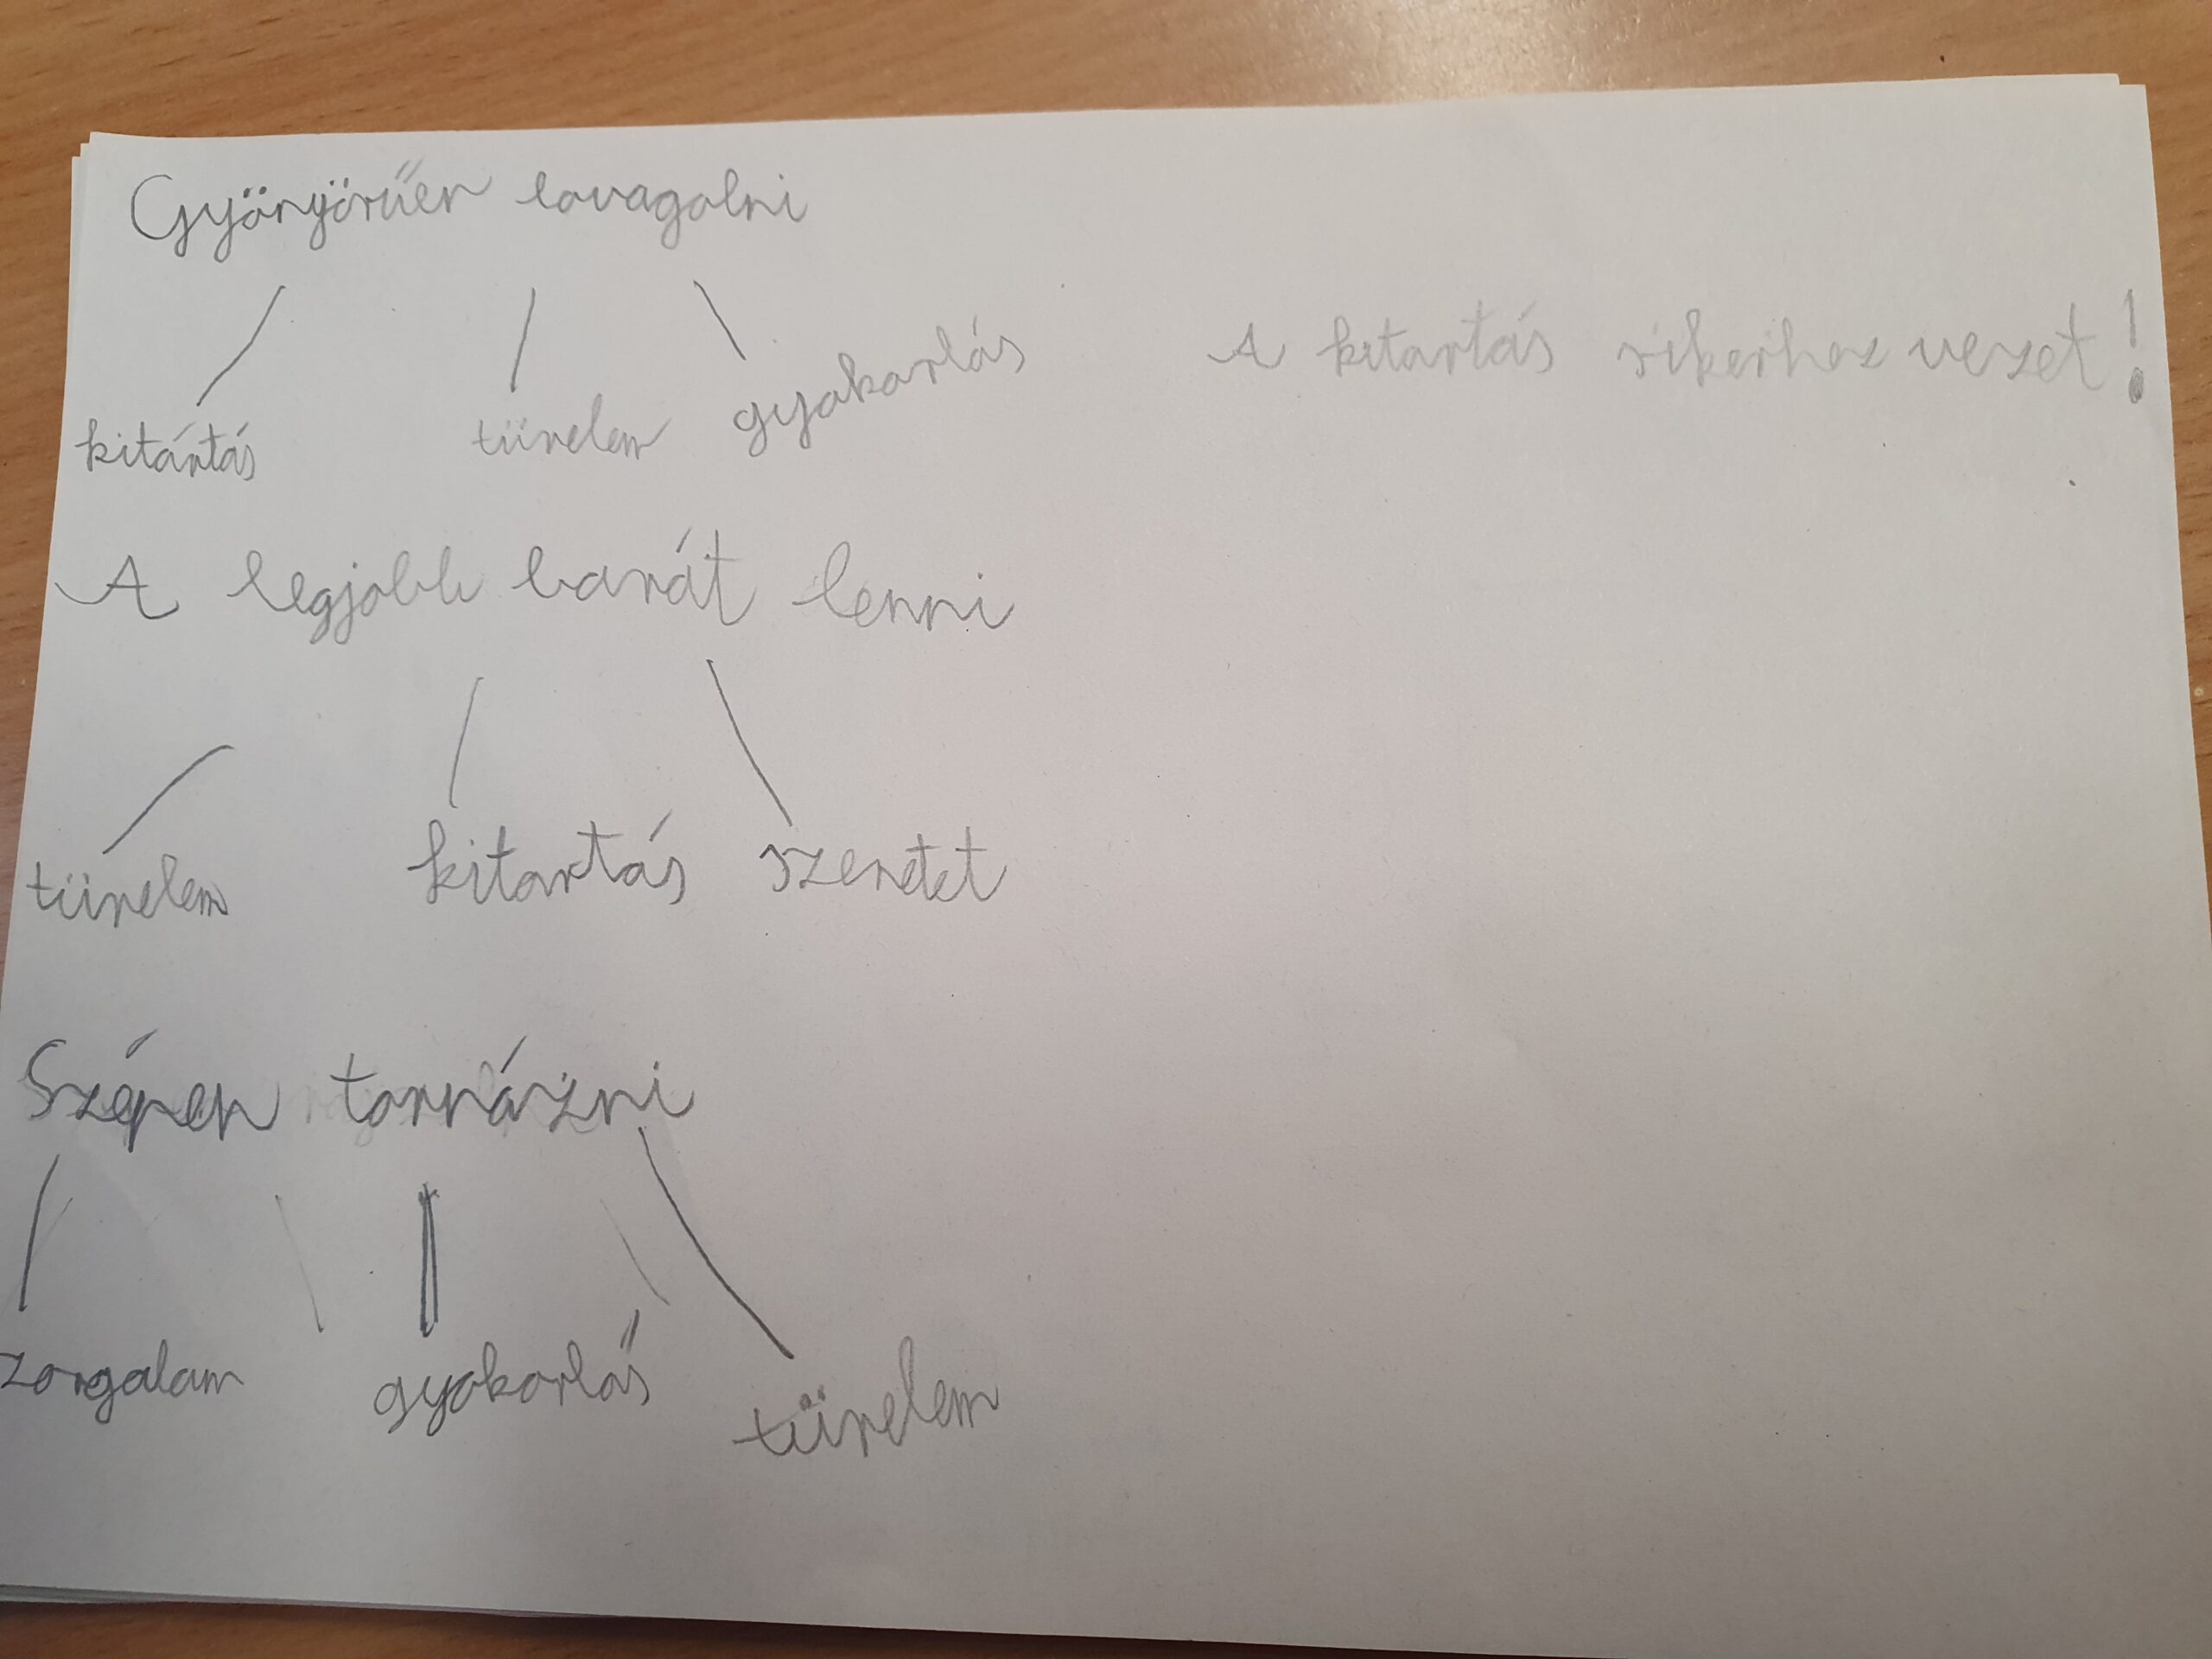 Gyönyörűen lovagolni
kitártás türelem gyakorlás
A kitartás sikerhez vezet!
A legjobb barát lenni
türelem kitartás szeretet
Szépen tornázni
zorgalam gyakorlás türelem